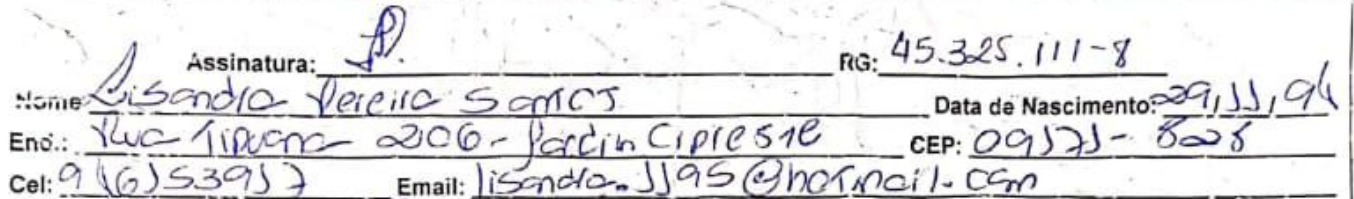 Assinatura: RG: 45.325.111-8
Nome Lisandra Pereira Santos Data de Nascimento: 29/11/94
End.: Rua Tipuana 206 - Jardin Cipreste CEP: 09171-828
Cel: 961653917 Email: lisandra.1195@hotmail.com